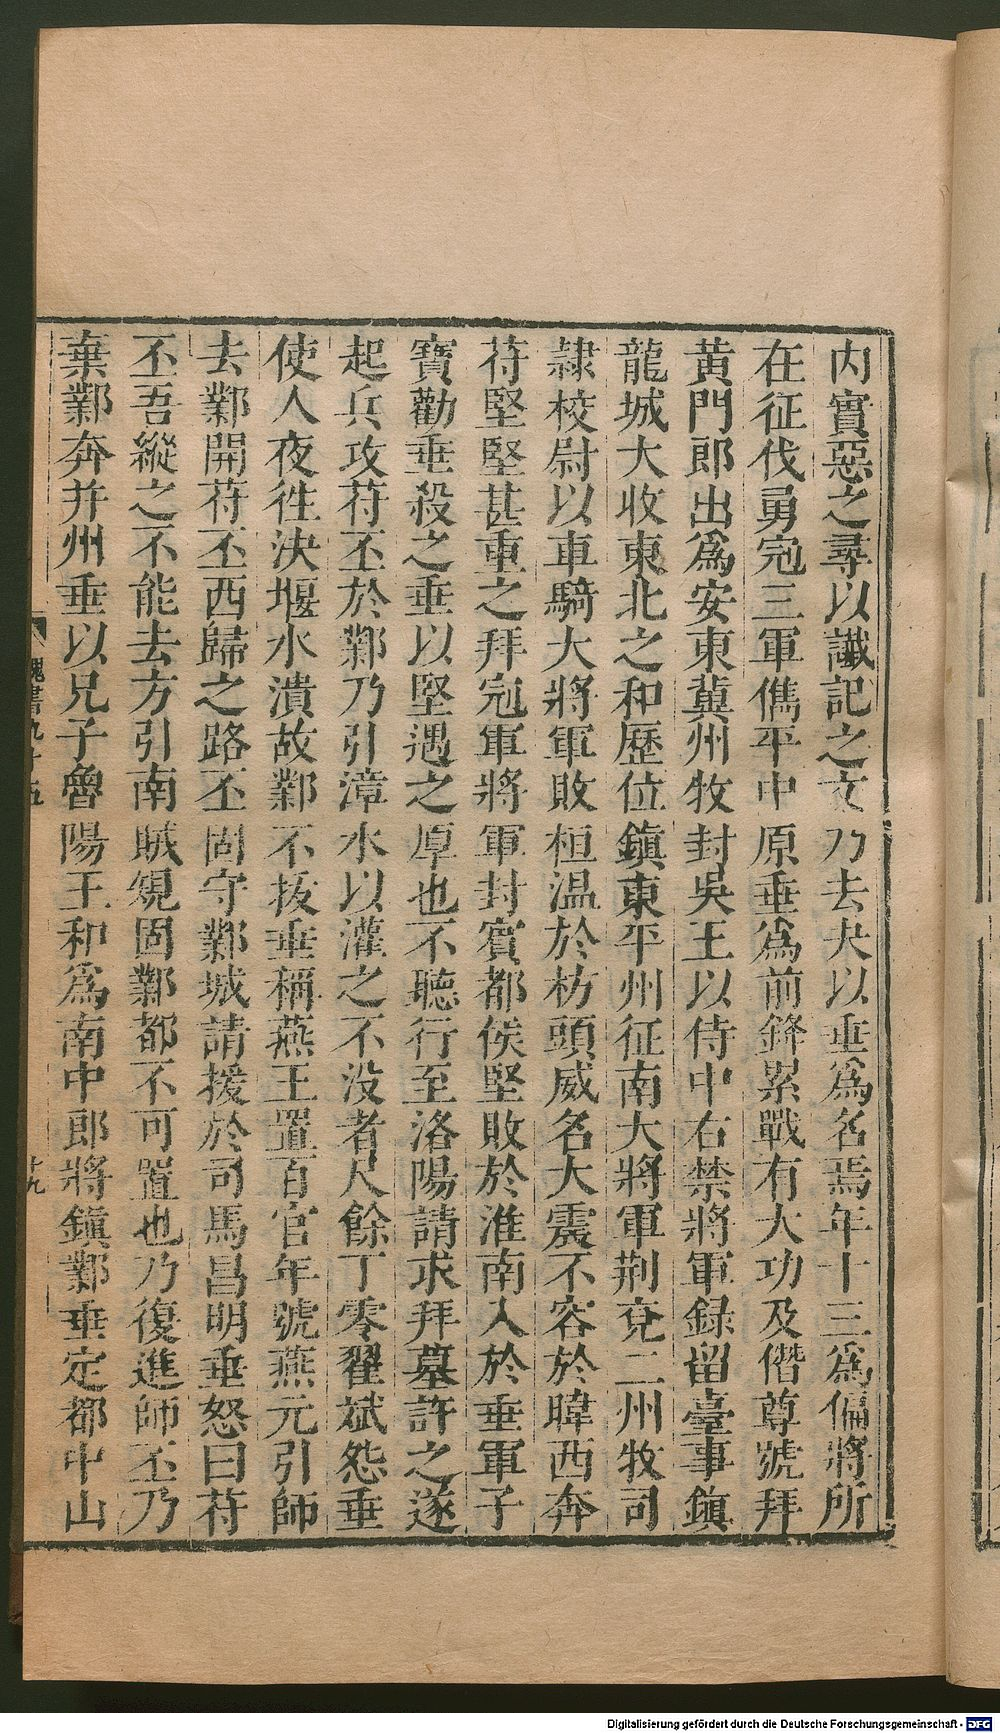 内實惡之尋以讖記之文乃去夬以垂爲名焉年十三爲偏將所
在征伐勇冠三軍儁平中原垂爲前鋒累戰有大功及僭尊號拜
黄門郎出爲安東冀州牧封吳王以侍中右禁將軍録留臺事鎮
龍城大收東北之和歷位鎮東平州征南大將軍荆兗二州牧司
隷校尉以車騎大將軍敗桓温於枋頭威名大震不容於暐西奔
苻堅堅甚重之拜冠軍將軍封賓都侯堅敗於淮南入於垂軍子
寶勸垂殺之垂以堅遇之厚也不聽行至洛陽請求拜墓許之遂
起兵攻苻丕於鄴乃引漳水以灌之不没者尺餘丁零翟斌怨垂
使人夜徃決堰水潰故鄴不拔垂稱燕王置百官年號燕元引師
去鄴開苻丕西歸之路丕固守鄴城請援於司馬昌明垂怒曰苻
丕吾縱之不能去方引南賊窺固鄴都不可置也乃復進師丕乃
棄鄴奔并州垂以兄子魯陽王和爲南中郎將鎮鄴垂定都中山
魏書九十五
十九
Digitalisierung gefördert durch die Deutsche Forschungsgemeinschaft - DFG